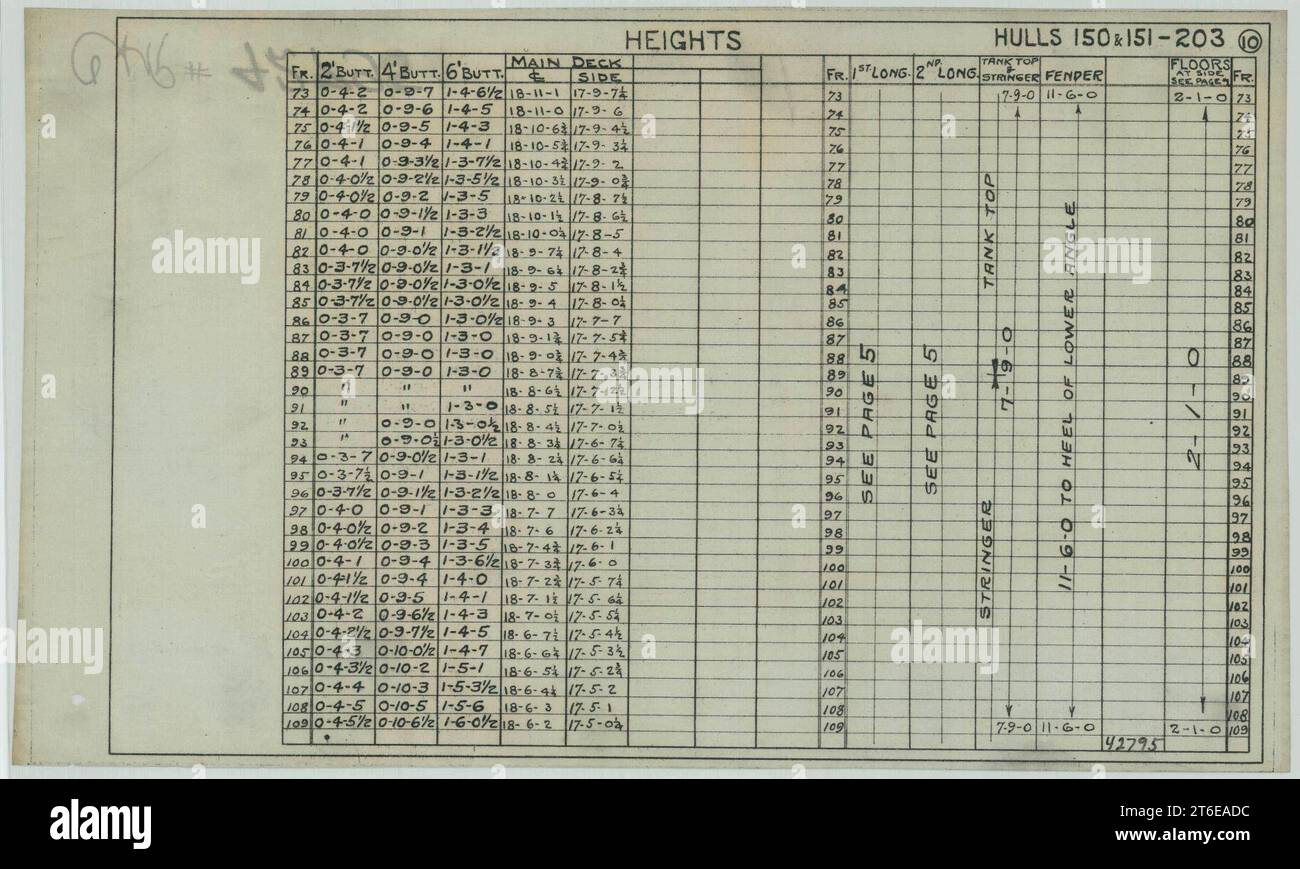 HEIGHTS
HULLS 150 & 151-203 10
FR. 2' BUTT. 4' BUTT. 6' BUTT. MAIN DECK ℄ SIDE
FR. 1ST LONG. 2ND LONG. TANK TOP & STRINGER FENDER FLOORS AT SIDE SEE PAGE 9 FR.
73 0-4-2 0-9-7 1-4-6½ 18-11-1 17-9-7¼ 73 7-9-0 11-6-0 2-1-0 73
74 0-4-2 0-9-6 1-4-5 18-11-0 17-9-6 74 74
75 0-4-1½ 0-9-5 1-4-3 18-10-6¾ 17-9-4½ 75 75
76 0-4-1 0-9-4 1-4-1 18-10-5¾ 17-9-3¼ 76 76
77 0-4-1 0-9-3½ 1-3-7½ 18-10-4¾ 17-9-2 77 77
78 0-4-0½ 0-9-2½ 1-3-5½ 18-10-3½ 17-9-0¾ 78 78
79 0-4-0½ 0-9-2 1-3-5 18-10-2½ 17-8-7½ 79 79
80 0-4-0 0-9-1½ 1-3-3 18-10-1½ 17-8-6½ 80 80
81 0-4-0 0-9-1 1-3-2½ 18-10-0¼ 17-8-5 81 81
82 0-4-0 0-9-0½ 1-3-1½ 18-9-7¼ 17-8-4 82 82
83 0-3-7½ 0-9-0½ 1-3-1 18-9-6¼ 17-8-2¾ 83 83
84 0-3-7½ 0-9-0½ 1-3-0½ 18-9-5 17-8-1½ 84 84
85 0-3-7½ 0-9-0½ 1-3-0½ 18-9-4 17-8-0¼ 85 85
86 0-3-7 0-9-0 1-3-0½ 18-9-3 17-7-7 86 86
87 0-3-7 0-9-0 1-3-0 18-9-1¾ 17-7-5¾ 87 87
88 0-3-7 0-9-0 1-3-0 18-9-0¾ 17-7-4¾ 88 88
89 0-3-7 0-9-0 1-3-0 18-8-7¾ 89 89
90 " " " 18-8-6½ 90 90
91 " " 1-3-0 18-8-5½ 17-7-1½ 91 91
92 " 0-9-0 1-3-0½ 18-8-4½ 17-7-0½ 92 92
93 " 0-9-0½ 1-3-0½ 18-8-3¼ 17-6-7¼ 93 93
94 0-3-7 0-9-0½ 1-3-1 18-8-2¼ 17-6-6¼ 94 94
95 0-3-7½ 0-9-1 1-3-1½ 18-8-1¼ 17-6-5¼ 95 95
96 0-3-7½ 0-9-1½ 1-3-2½ 18-8-0 17-6-4 96 96
97 0-4-0 0-9-1 1-3-3 18-7-7 17-6-3¼ 97 97
98 0-4-0½ 0-9-2 1-3-4 18-7-6 17-6-2¼ 98 98
99 0-4-0½ 0-9-3 1-3-5 18-7-4¾ 17-6-1 99 99
100 0-4-1 0-9-4 1-3-6½ 18-7-3¾ 17-6-0 100 100
101 0-4-1½ 0-9-4 1-4-0 18-7-2¾ 17-5-7¼ 101 101
102 0-4-1½ 0-9-5 1-4-1 18-7-1½ 17-5-6¼ 102 102
103 0-4-2 0-9-6½ 1-4-3 18-7-0½ 17-5-5¼ 103 103
104 0-4-2½ 0-9-7½ 1-4-5 18-6-7½ 17-5-4½ 104 104
105 0-4-3 0-10-0½ 1-4-7 18-6-6¼ 17-5-3½ 105 105
106 0-4-3½ 0-10-2 1-5-1 18-6-5¼ 17-5-2¾ 106 106
107 0-4-4 0-10-3 1-5-3½ 18-6-4¼ 17-5-2 107 107
108 0-4-5 0-10-5 1-5-6 18-6-3 17-5-1 108 108
109 0-4-5½ 0-10-6½ 1-6-0½ 18-6-2 17-5-0¼ 109 7-9-0 11-6-0 2-1-0 109
SEE PAGE 5
SEE PAGE 5
TANK TOP
STRINGER
7-9-0
11-6-0 TO HEEL OF LOWER ANGLE
2-1-0
42795
alamy
alamy
alamy
alamy
alamy
alamy
Image ID: 2T6EADC
www.alamy.com